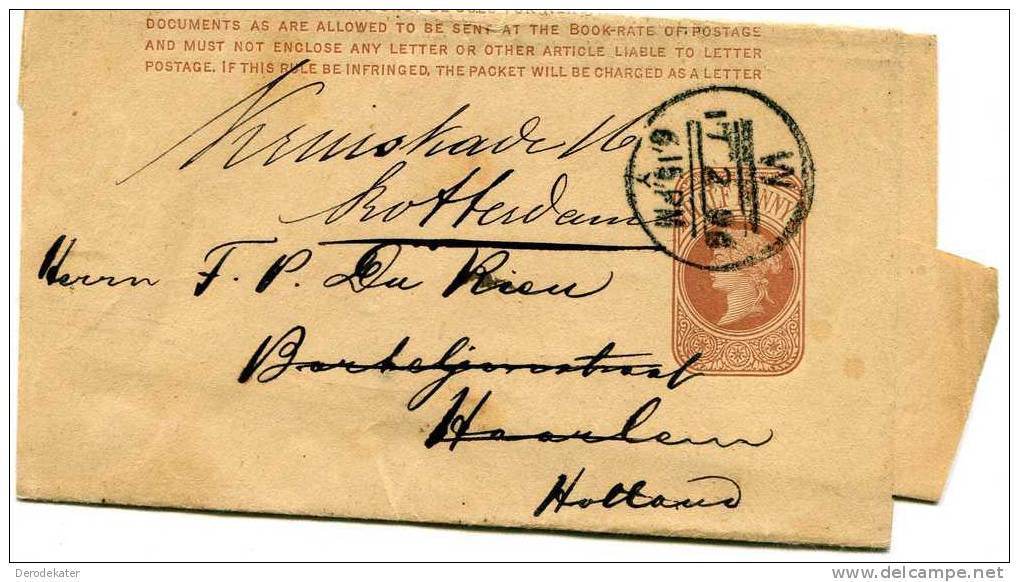 DOCUMENTS AS ARE ALLOWED TO BE SENT AT THE BOOK-RATE OF POSTAGE
AND MUST NOT ENCLOSE ANY LETTER OR OTHER ARTICLE LIABLE TO LETTER
POSTAGE. IF THIS RULE BE INFRINGED, THE PACKET WILL BE CHARGED AS A LETTER
16
Rotterdam
Herrn F. P. Du Rieu
Barteljorisstraat
Haarlem
Holland
W
17 2
6.15.PM
Y
HALFPENNY
Derodekater
delcampe.net